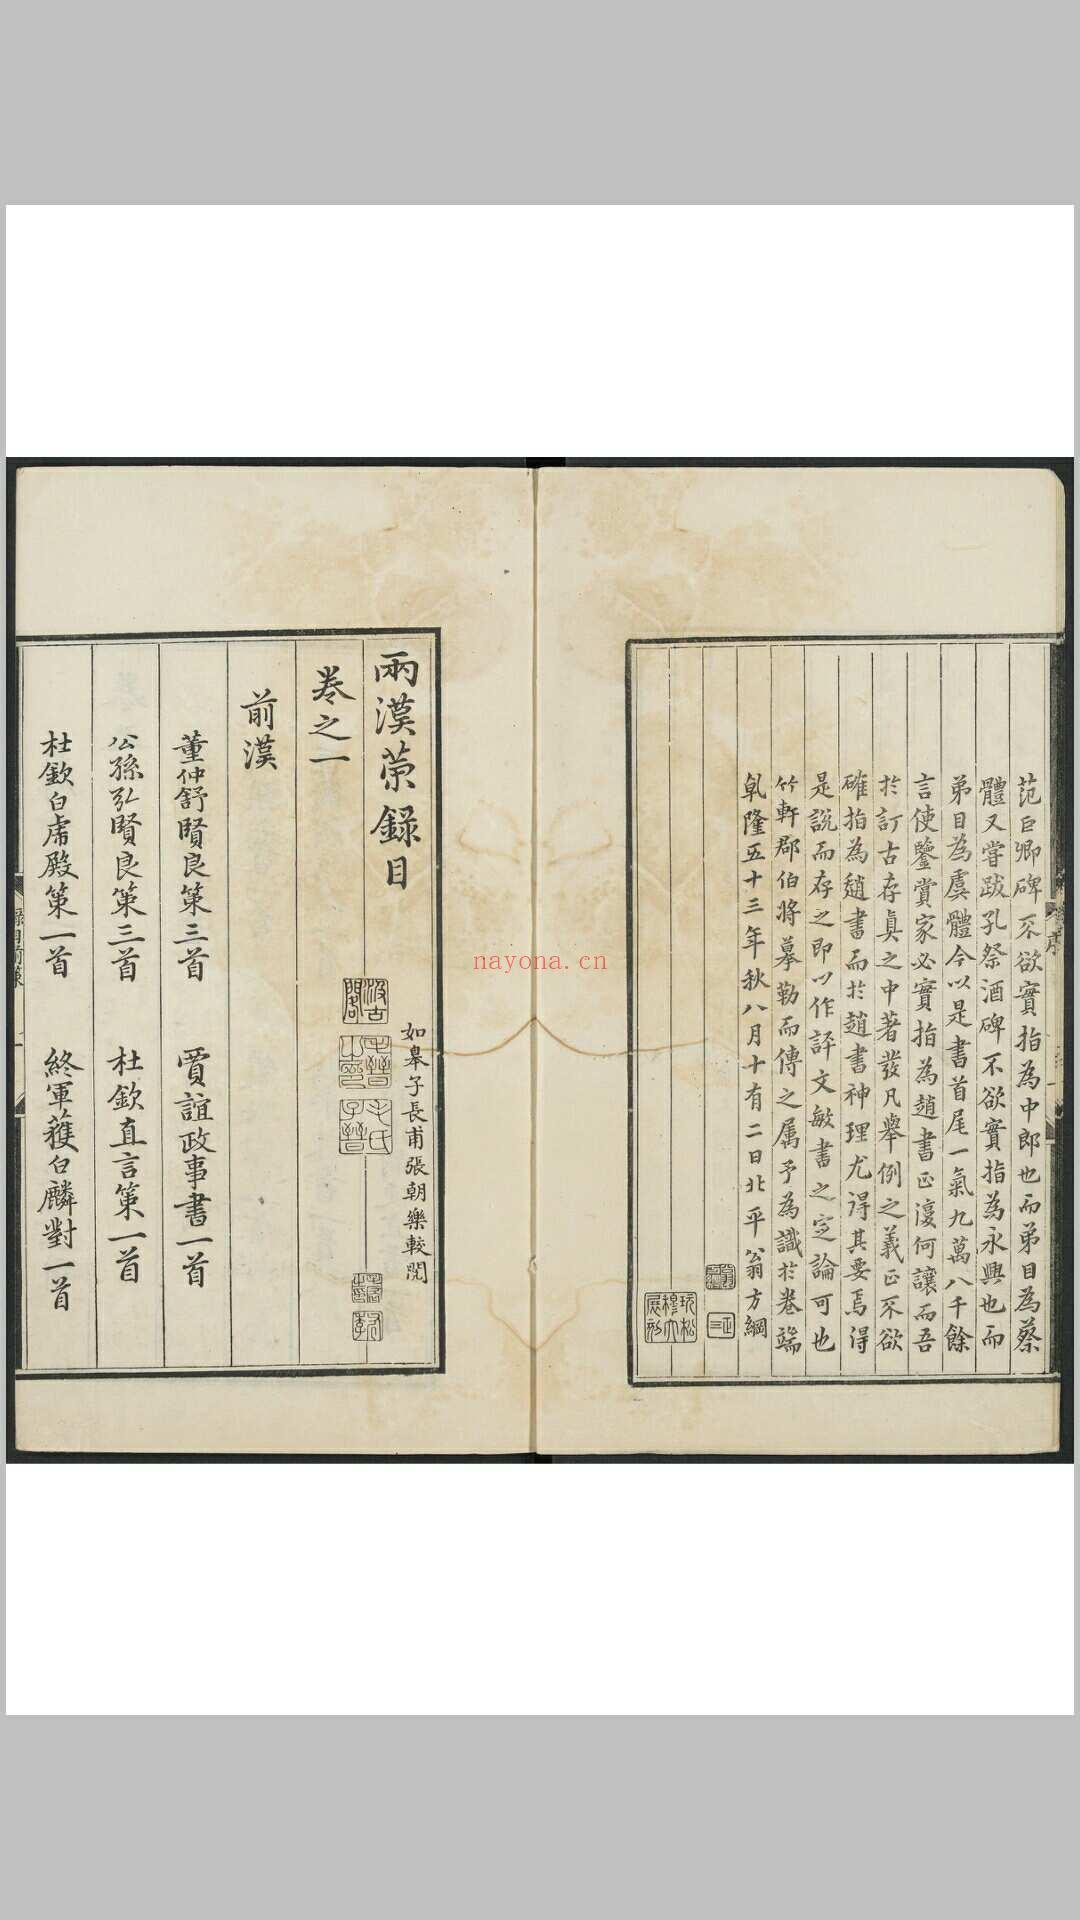 范巨卿碑不欲實指為中郎也而弟目為蔡
體又嘗跋孔祭酒碑不欲實指為永興也而
弟目為虞體今以是書首尾一氣九萬八千餘
言使鑒賞家必實指為趙書正復何讓而吾
於訂古存真之中著發凡舉例之義正不欲
確指為趙書而於趙書神理尤得其要焉得
是說而存之即以作評文敏書之定論可也
竹軒郡伯將摹勒而傳之属予為識於卷端
乹隆五十三年秋八月十有二日北平翁方綱
兩漢策錄目
如皋子長甫張朝樂較閱
汲古閣
毛氏子晉
卷之一
前漢
董仲舒賢良策三首
賈誼政事書一首
公孫弘賢良策三首
杜欽直言策一首
杜欽白虎殿策一首
終軍獲白麟對一首
nayona.cn